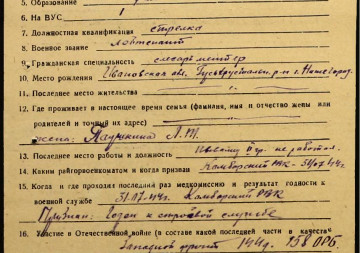 5. Образование
6. На ВУС 1
7. Должностная квалификация стрелка
8. Военное звание лейтенант
9. Гражданская специальность слесарь
10. Место рождения Ивановская обл. р-н г.
11. Последнее место жительства
12. Где проживает в настоящее время семья (фамилия, имя и отчество жены или
родителей и точный их адрес)
жена:
13. Последнее место работы и должность не работал.
14. Каким райгорвоенкоматом и когда призван РВК -
15. Когда и где проходил последний раз медкомиссию и результат годности к
военной службе 31.07.44г. РВК
Признан: годен к строевой службе
16. Участие в Отечественной войне (в составе какой последней части в качестве
Западный фронт 258 ОРБ.